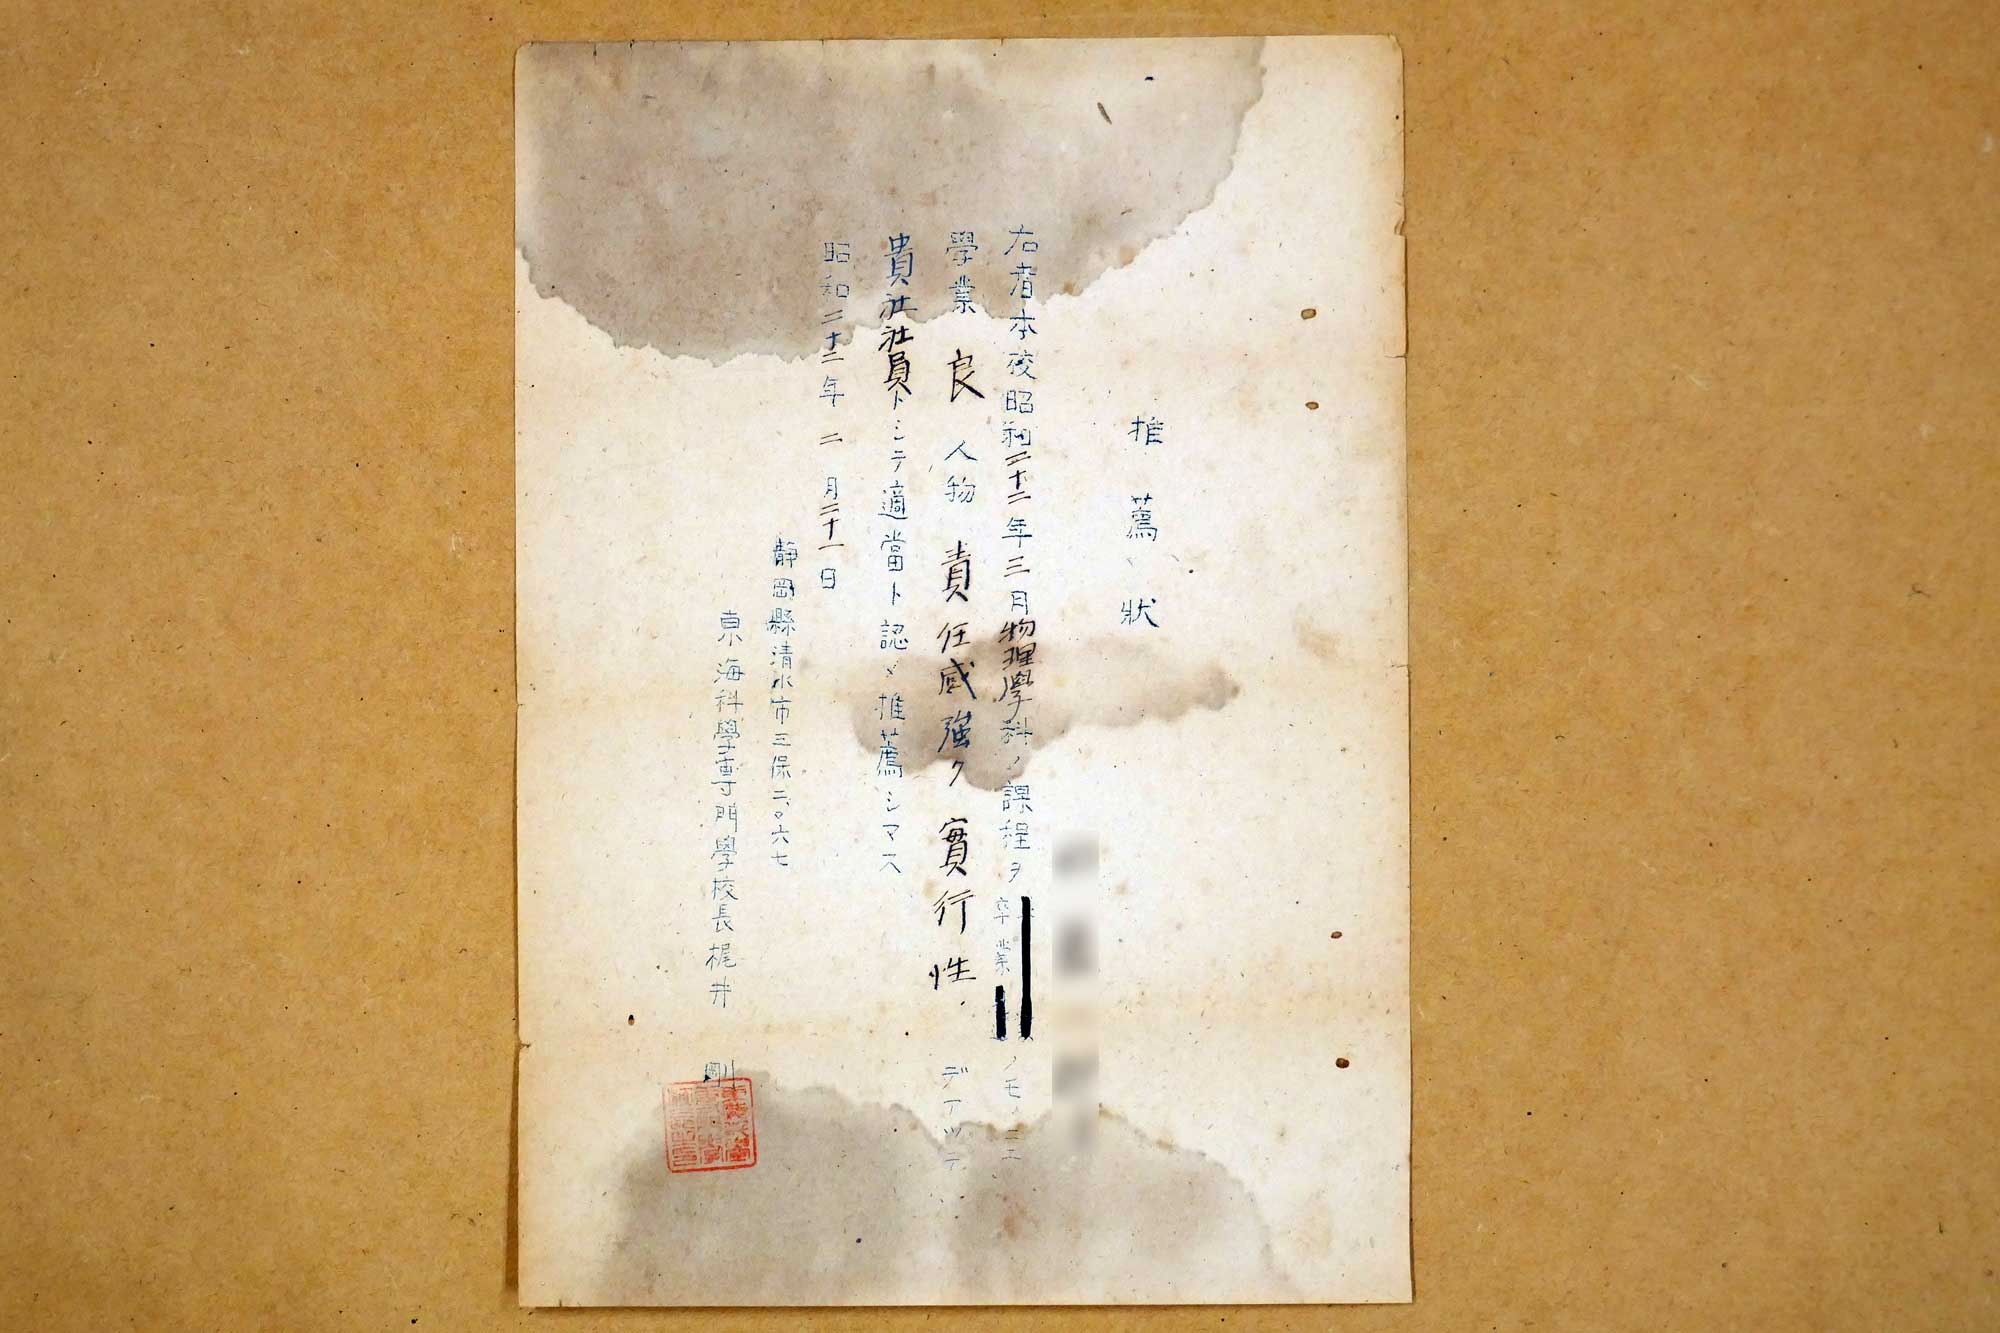 推薦状
右者本校昭和二十二年三月物理學科ノ課程ヲ卒業ノモノニ
學業 良 人物 責任感強ク實行性、デアツテ
貴社社員トシテ適當ト認メ推薦シマス
昭和二十二年二月二十一日
静岡縣清水市三保二、〇六七
東海科學専門學校長梶井 剛